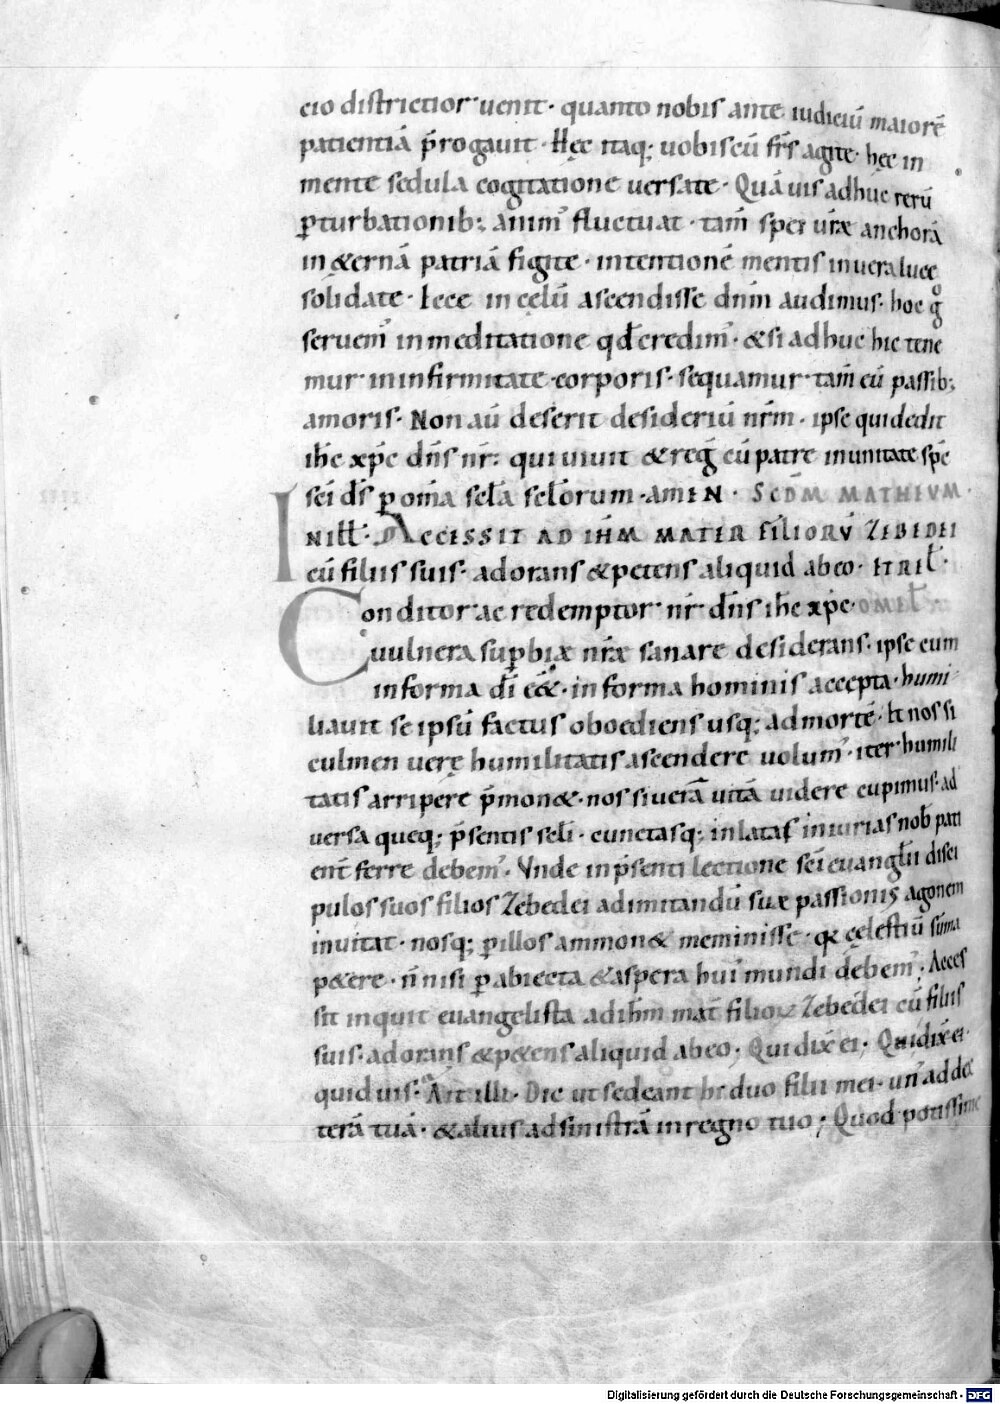 cio districtior uenit· quanto nobis ante iudiciū maiorē
patientiā p̄rogauit· Hęc itaq; uobiscū frs̄ agite· hęc in
mente sedula cogitatione uersate· Quāuis adhuc rerū
ꝑturbationib; animꝰ fluctuat· tam̄ spei ur̄æ anchorā
in &ernā patriā figite· intentionē mentis in uera luce
solidate· Ecce in cęlū ascendisse dn̄m audimus· hoc gͦ
seruemꝰ in meditatione qd̄ credimꝰ· & si adhuc hic tene
mur in infirmitate corporis· sequamur tam̄ eū passib;
amoris· Non aū deserit desideriū nr̄m· ipse qui dedit
ih̄c xp̄c dn̄s nr̄· qui uiuit & reḡ cū patre in unitate sp̄c
sc̄i ds̄ ꝑ om̄a sc̄la sc̄lorum· amEN· SCD̄M MATHEVM·
IN ILL̄· ACCESSIT AD IH̄M MATER FILIORV̄ ZEBEDEI
cū filiis suis· adorans & petens aliquid ab eo· ET REL̄·
Conditor ac redemptor nr̄ dn̄s ih̄c xp̄c· OMEL̄
uulnera suꝑbiæ nr̄æ sanare desiderans· ipse cum
in forma dī e&· in forma hominis accepta· humi
liauit se ipsū factus oboediens usq; ad mortē· Et nos si
culmen uerę humilitatis ascendere uolumꝰ· iter humili
tatis arripere p̄mon&· nos si uerā uitā uidere cupimus· ad
uersa queq; p̄sentis sc̄li· cunctasq; inlatas iniurias nob̄ pati
ent̄ ferre debemꝰ· Vnde in p̄senti lectione sc̄i euangl̄ii disci
pulos suos filios Zebedei ad imitandū suæ passionis agonem
inuitat· nosq; ꝑ illos ammon& meminisse· qꝫ cęlestiū sūma
p&ere· n̄ nisi ꝑ abiecta & aspera huiꝰ mundi debemꝰ; Acces
sit inquit euangelista ad ih̄m mat̄ filioꝝ Zebedei cū filiis
suis· adorans & p&ens aliquid ab eo; Qui dix̄ ei; Qui dix̄ ei·
quid uis· Ait illi· Dic ut sedeant hi duo filii mei· unꝰ ad dex
terā tuā· & alius ad sinistrā in regno tuo; Quod potissime
Digitalisierung gefördert durch die Deutsche Forschungsgemeinschaft - DFG